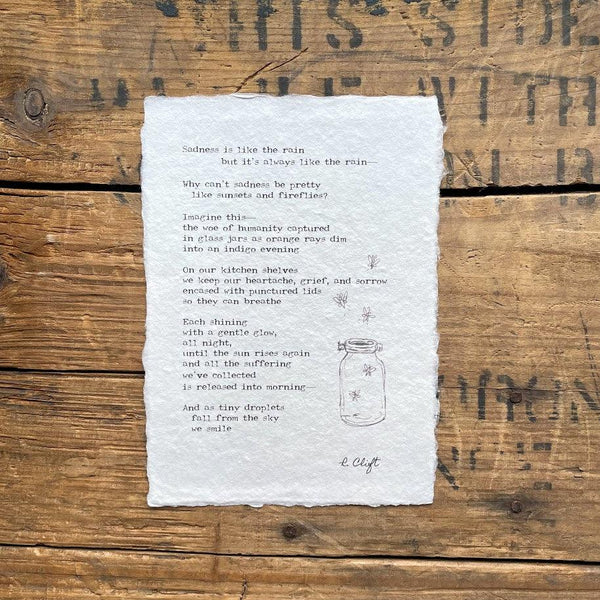 THIS SIDE
WITH
Sadness is like the rain
but it's always like the rain—
Why can't sadness be pretty
like sunsets and fireflies?
Imagine this—
the woe of humanity captured
in glass jars as orange rays dim
into an indigo evening
On our kitchen shelves
we keep our heartache, grief, and sorrow
encased with punctured lids
so they can breathe
Each shining
with a gentle glow,
all night,
until the sun rises again
and all the suffering
we've collected
is released into morning—
And as tiny droplets
fall from the sky
we smile
C. Clift